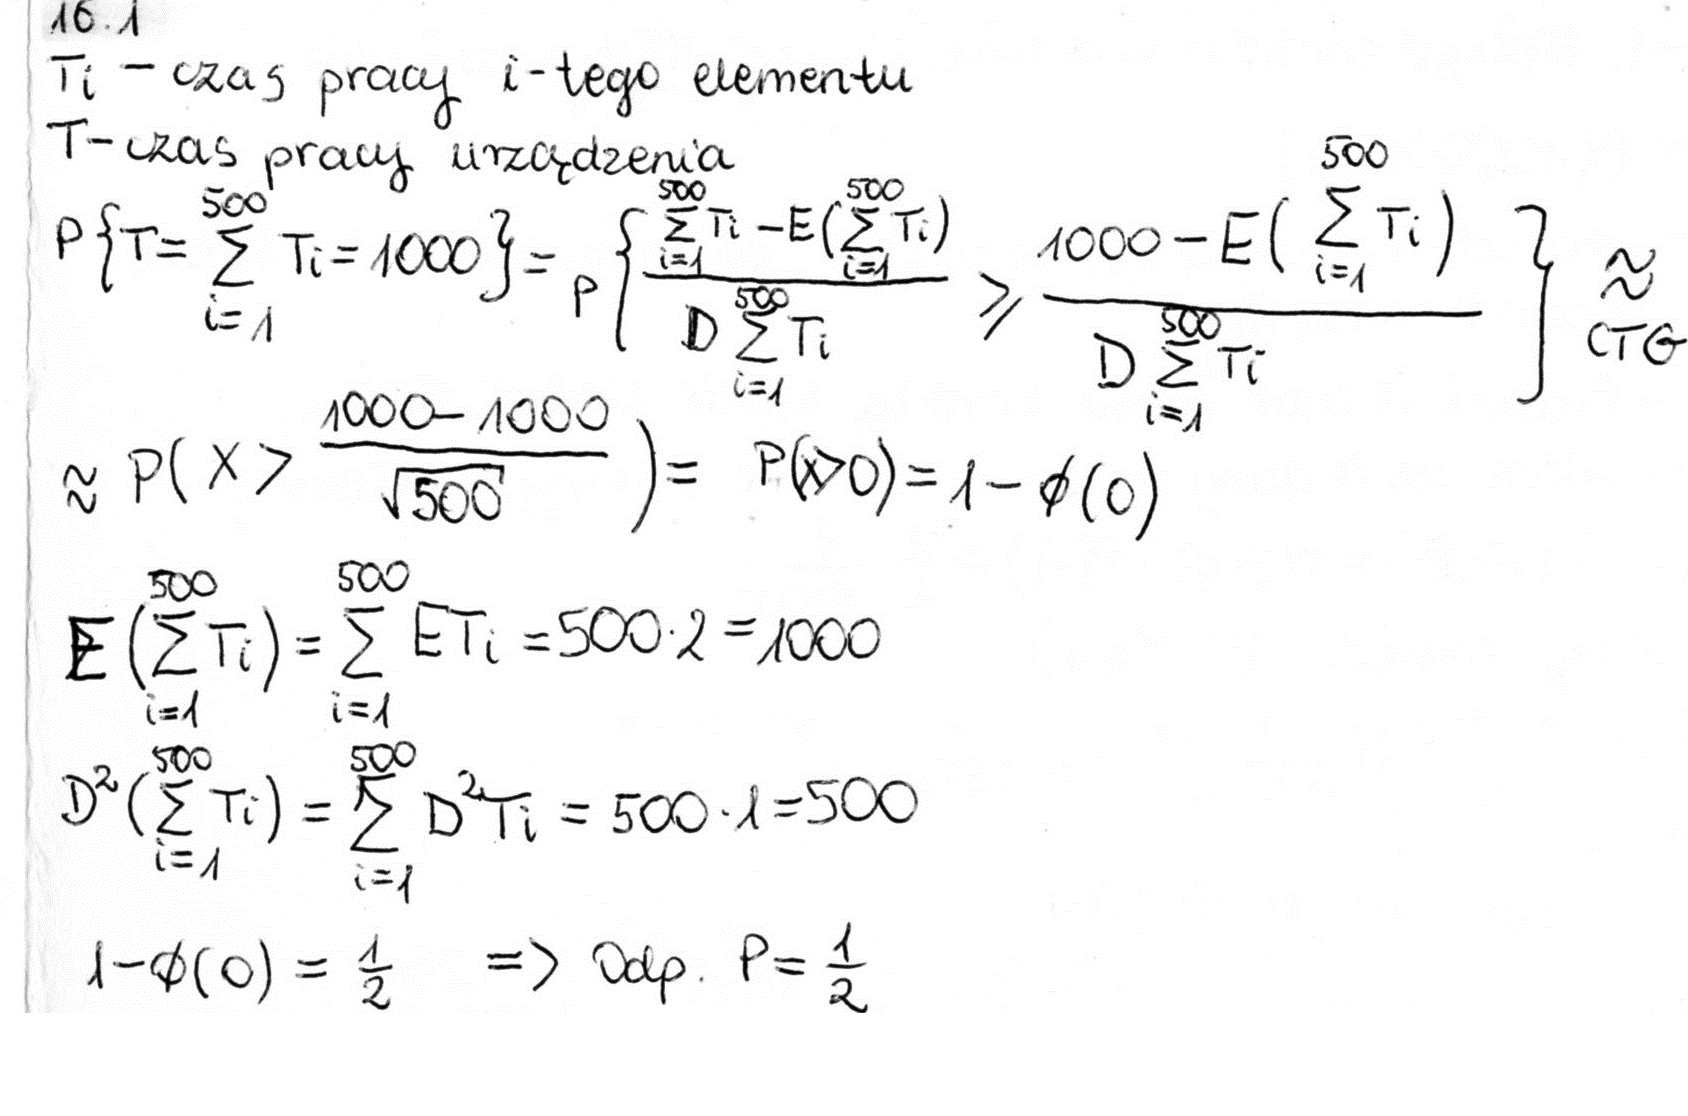 16.1
Ti – czas pracy i-tego elementu
T – czas pracy urządzenia
P{T = \sum_{i=1}^{500} Ti = 1000} = P{ \frac{\sum_{i=1}^{500} Ti - E(\sum_{i=1}^{500} Ti)}{D \sum_{i=1}^{500} Ti} ⩾ \frac{1000 - E(\sum_{i=1}^{500} Ti)}{D \sum_{i=1}^{500} Ti} } ≈ CTG
≈ P( X > \frac{1000 - 1000}{\sqrt{500}} ) = P(X>0) = 1 - ϕ(0)
E(\sum_{i=1}^{500} Ti) = \sum_{i=1}^{500} ETi = 500·2 = 1000
D²(\sum_{i=1}^{500} Ti) = \sum_{i=1}^{500} D²Ti = 500·1 = 500
1 - ϕ(0) = \frac{1}{2} => Odp. P = \frac{1}{2}